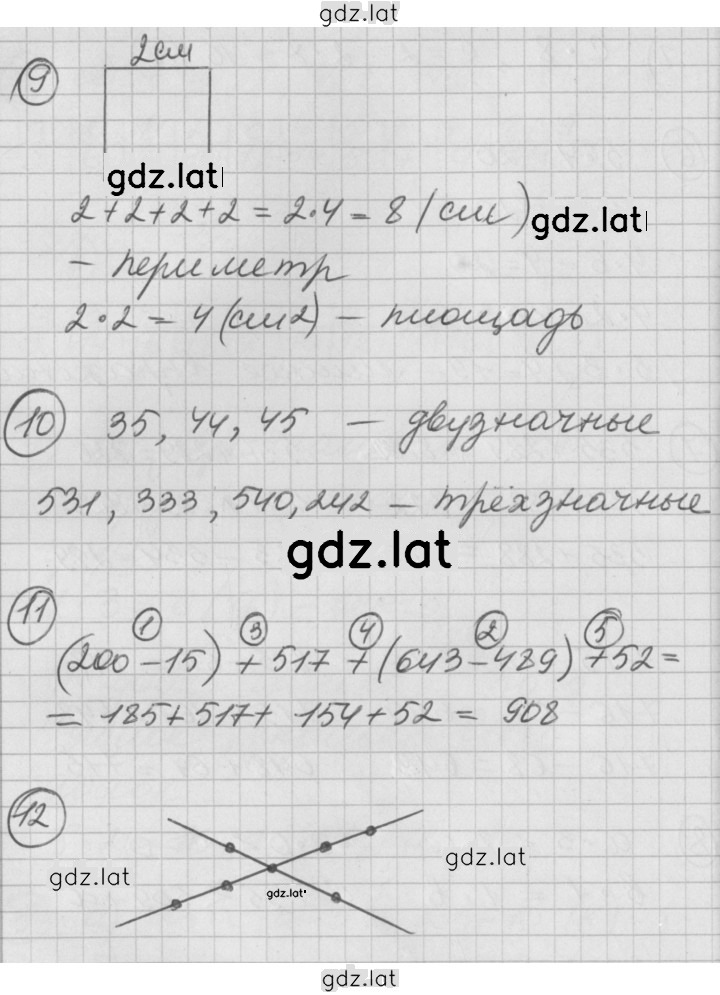 gdz.lat
9
2см
gdz.lat
2+2+2+2=2·4=8(см)
gdz.lat
- периметр
2·2=4(см2) - площадь
10 35, 44, 45 - двузначные
531, 333, 540, 242 - трёхзначные
gdz.lat
11
1 3 4 2 5
(200-15)+517+(643-489)+52=
=185+517+154+52=908
12
gdz.lat
gdz.lat
gdz.lat
gdz.lat